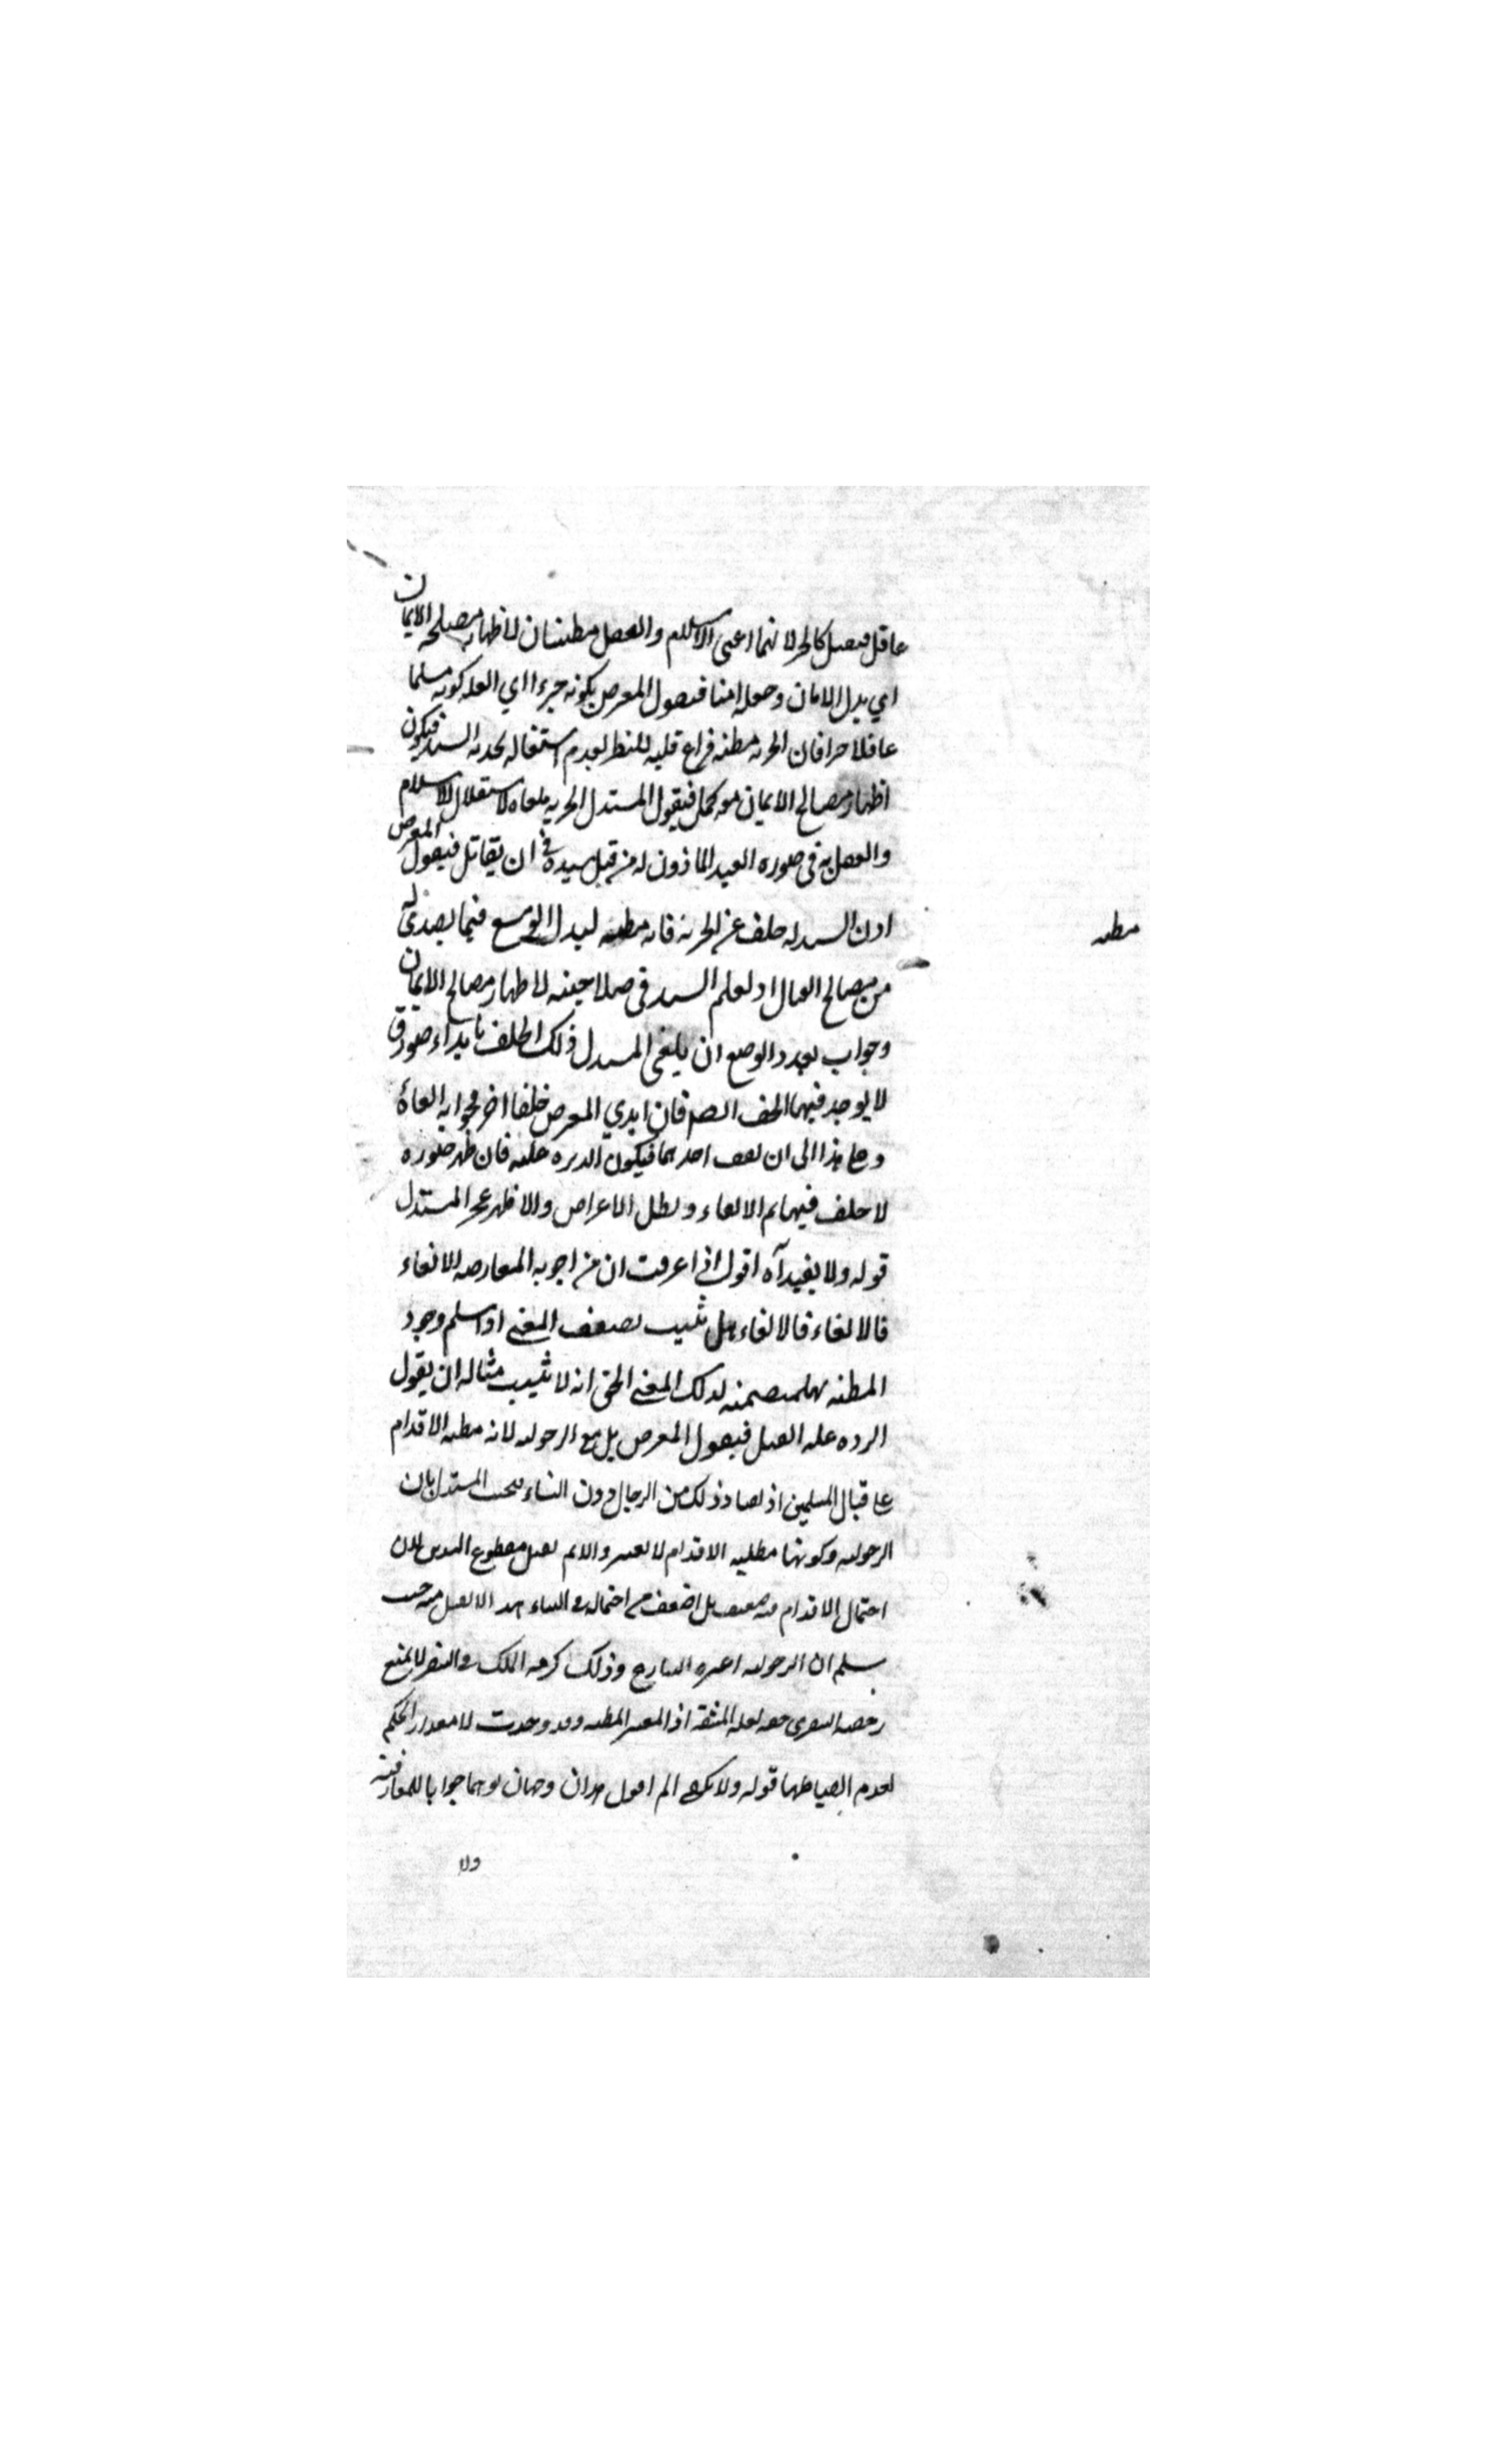 عاقل فيقبل كالحر لانهما اعنى الاسلام والعقل مظنتان لاظهار مصلحة الايمان
اي بدل الامان وجعله امنا فيقول المعترض بكونه جزءا اي العلة كونه مسلما
عاقلا حرا فان الحرية مظنة فراغ قلبه للنظر لعدم اشتغاله بخدمة السيد فيكون
اظهار مصالح الايمان معه اكمل فيقول المستدل الحرية ملغاة لاستقلال الاسلام
والعقل به في صورة العبد الماذون له من قبل سيده في ان يقاتل فيقول المعترض
اذن السيد له خلف عن الحرية فانه مظنة لبدل الوسع فيما يصدى له
مظنة
من مصالح القتال او لعلم السيد في صلاحيته لاظهار مصالح الايمان
وجواب تعدد الوضع ان يلغى المستدل ذلك الخلف بابداء صورة
لا يوجد فيها الخلف فان ابدي المعترض خلفا اخر فجوابه الغاؤه
وعلى هذا الى ان يقف احدهما فيكون الدبرة عليه فان ظهر صورة
لا خلف فيها تم الالغاء وبطل الاعتراض والا ظهر عجز المستدل
قوله ولا يفيد آه اقول اذا عرفت ان من اجوبة المعارضة الالغاء
فالالغاء فالالغاء هل يثبت بضعف المعنى اذا سلم وجود
المظنة المتضمنة لذلك المعنى الحق انه لا يثبت مثاله ان يقول
الردة علة القتل فيقول المعترض بل مع الرجولية لانه مظنة الاقدام
على قتال المسلمين اذ يعتاد ذلك من الرجال دون النساء فيجيب المستدل بان
الرجولية وكونها مظنة الاقدام لا تعتبر والا لم يقتل مقطوع اليدين لان
احتمال الاقدام فيه ضعيف بل اضعف من احتماله في النساء هذا لا يقبل منه حيث
سلم ان الرجولية اعتبره الشارع وذلك كترفه الملك في السفر لا يمنع
رخصة السفر في حقه لعلة المشقة اذ المعتبر المظنة وقد وجدت لا مقدار الحكم
لعدم انضباطها قوله ولا يكفي الخ اقول هذان وجهان توهما جوابا للمعارضة
ولا